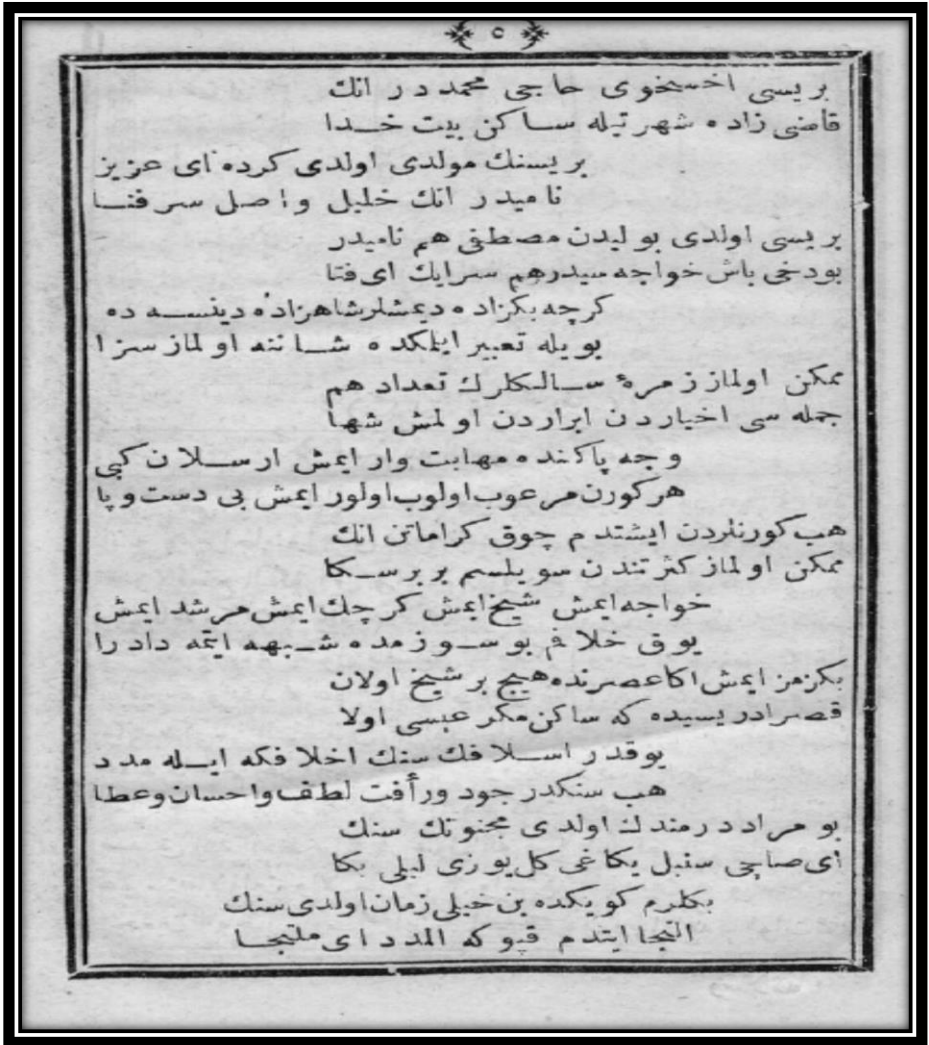 ٥
بريسی اخسخوی حاجی محمددر انك
قاضی زاده شهرتيله ساكن بيت خدا
بريسنك مولدی اولدی كرده ای عزيز
ناميدر انك خليل واصل سر فنا
بريسی اولدی بوليدن مصطفی هم ناميدر
بودخی باش خواجه سيدرهم سرايك ای فتا
كرچه بكزاده ديمشلر شاهزاده دينسه ده
بويله تعبير ايلكده شاننه اولماز سزا
ممكن اولماز زمرۀ سالكلرك تعداد هم
جمله سی اخياردن ابراردن اولمش شها
وجه پاكنده مهابت وار ايمش ارسلان كبی
هركورن مرعوب اولوب اولور ايمش بی دست و پا
هب كورنلردن ايشتدم چوق كراماتن انك
ممكن اولماز كثرتندن سويلسم بر بر سكا
خواجه ايمش شيخ ايمش كرچك ايمش مرشد ايمش
يوق خلافم بو سوزمده شبهه ايتمه دادرا
بكزمز ايمش اكا عصرنده هيچ بر شيخ اولان
قصر ادريسيده كه ساكن مكر عيسی اولا
يوقدر اسلافك سنك اخلافكه ايله مدد
هب سنكدر جود ورأفت لطف واحسان وعطا
بو مراد دردمندك اولدی مجنونك سنك
ای صاچی سنبل يكاغی كل يوزی ليلی بكا
بكلرم كويكده بن خيلی زمان اولدی سنك
التجا ايتدم قپوكه المدد ای ملتجا